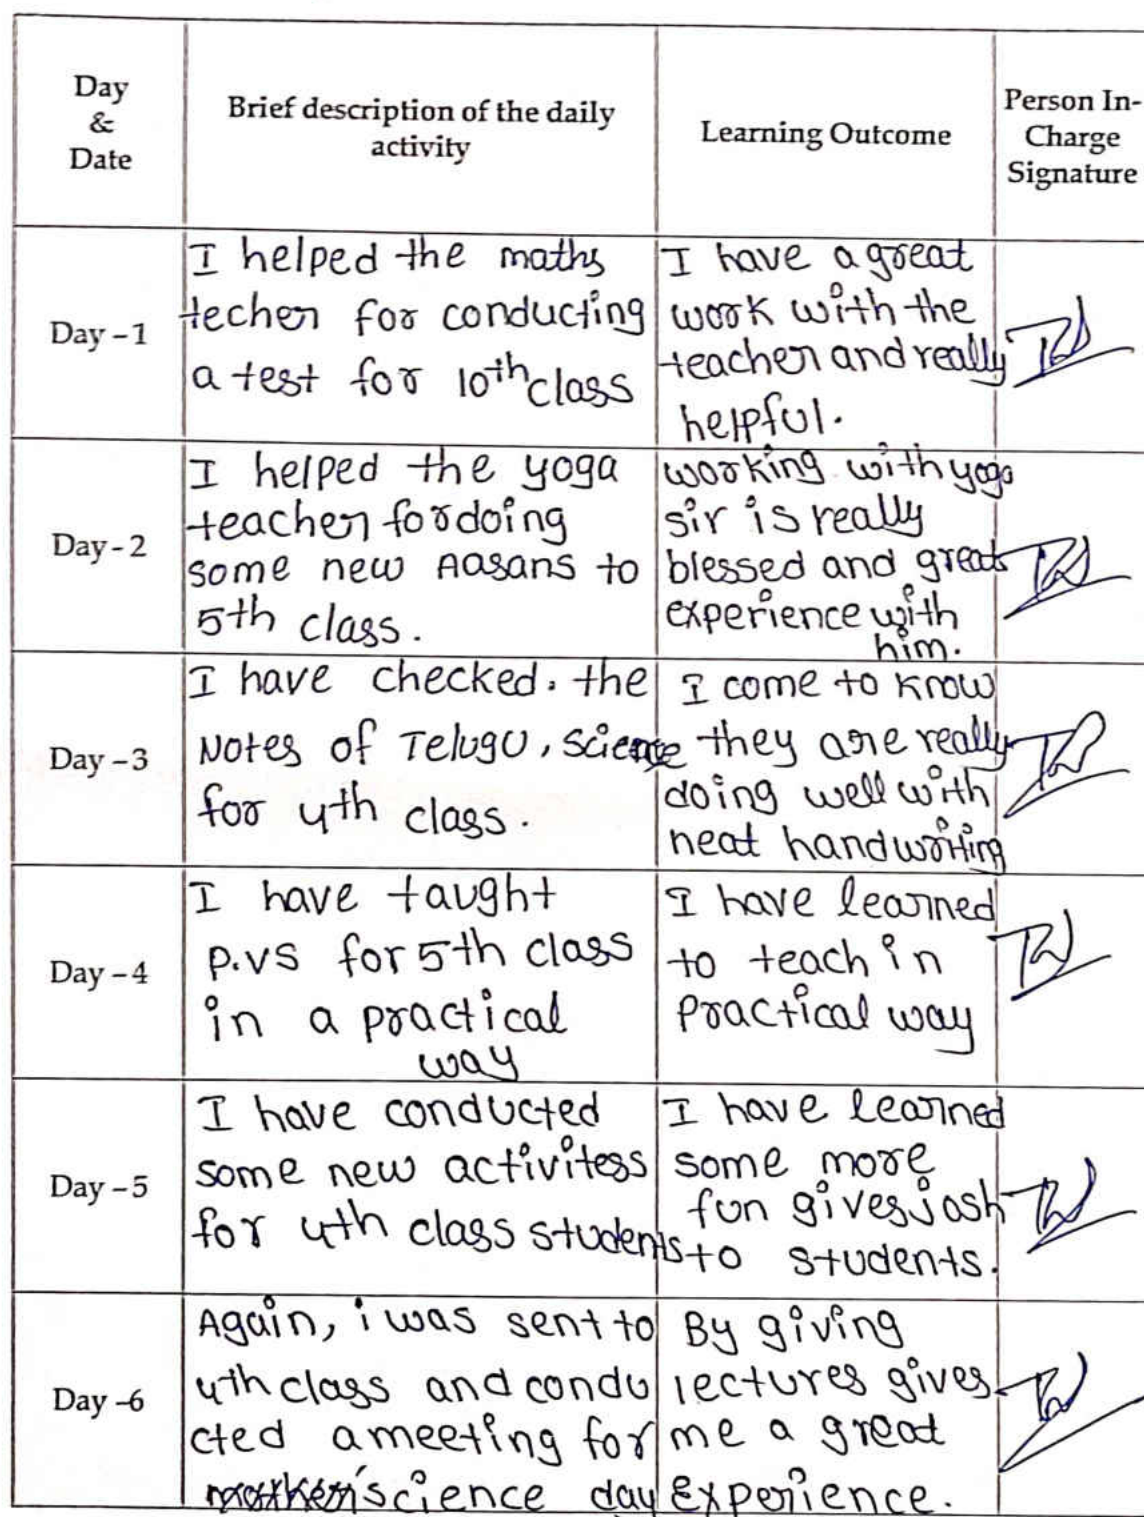 Day
&
Date
Brief description of the daily
activity
Learning Outcome
Person In-
Charge
Signature
Day - 1
I helped the maths
techer for conducting
a test for 10th class
I have a great
work with the
teacher and really
helpful.
Day - 2
I helped the yoga
teacher for doing
some new Aasans to
5th class.
working with yoga
sir is really
blessed and great
experience with
him.
Day - 3
I have checked. the
Notes of Telugu, science
for 4th class.
I come to know
they are really
doing well with
neat handwriting
Day - 4
I have taught
P.VS for 5th class
in a practical
way
I have learned
to teach in
practical way
Day - 5
I have conducted
some new activitess
for 4th class students
I have learned
some more
fun gives josh
to students.
Day - 6
Again, i was sent to
4th class and condu
cted a meeting for
science day
By giving
lectures gives
me a great
experience.